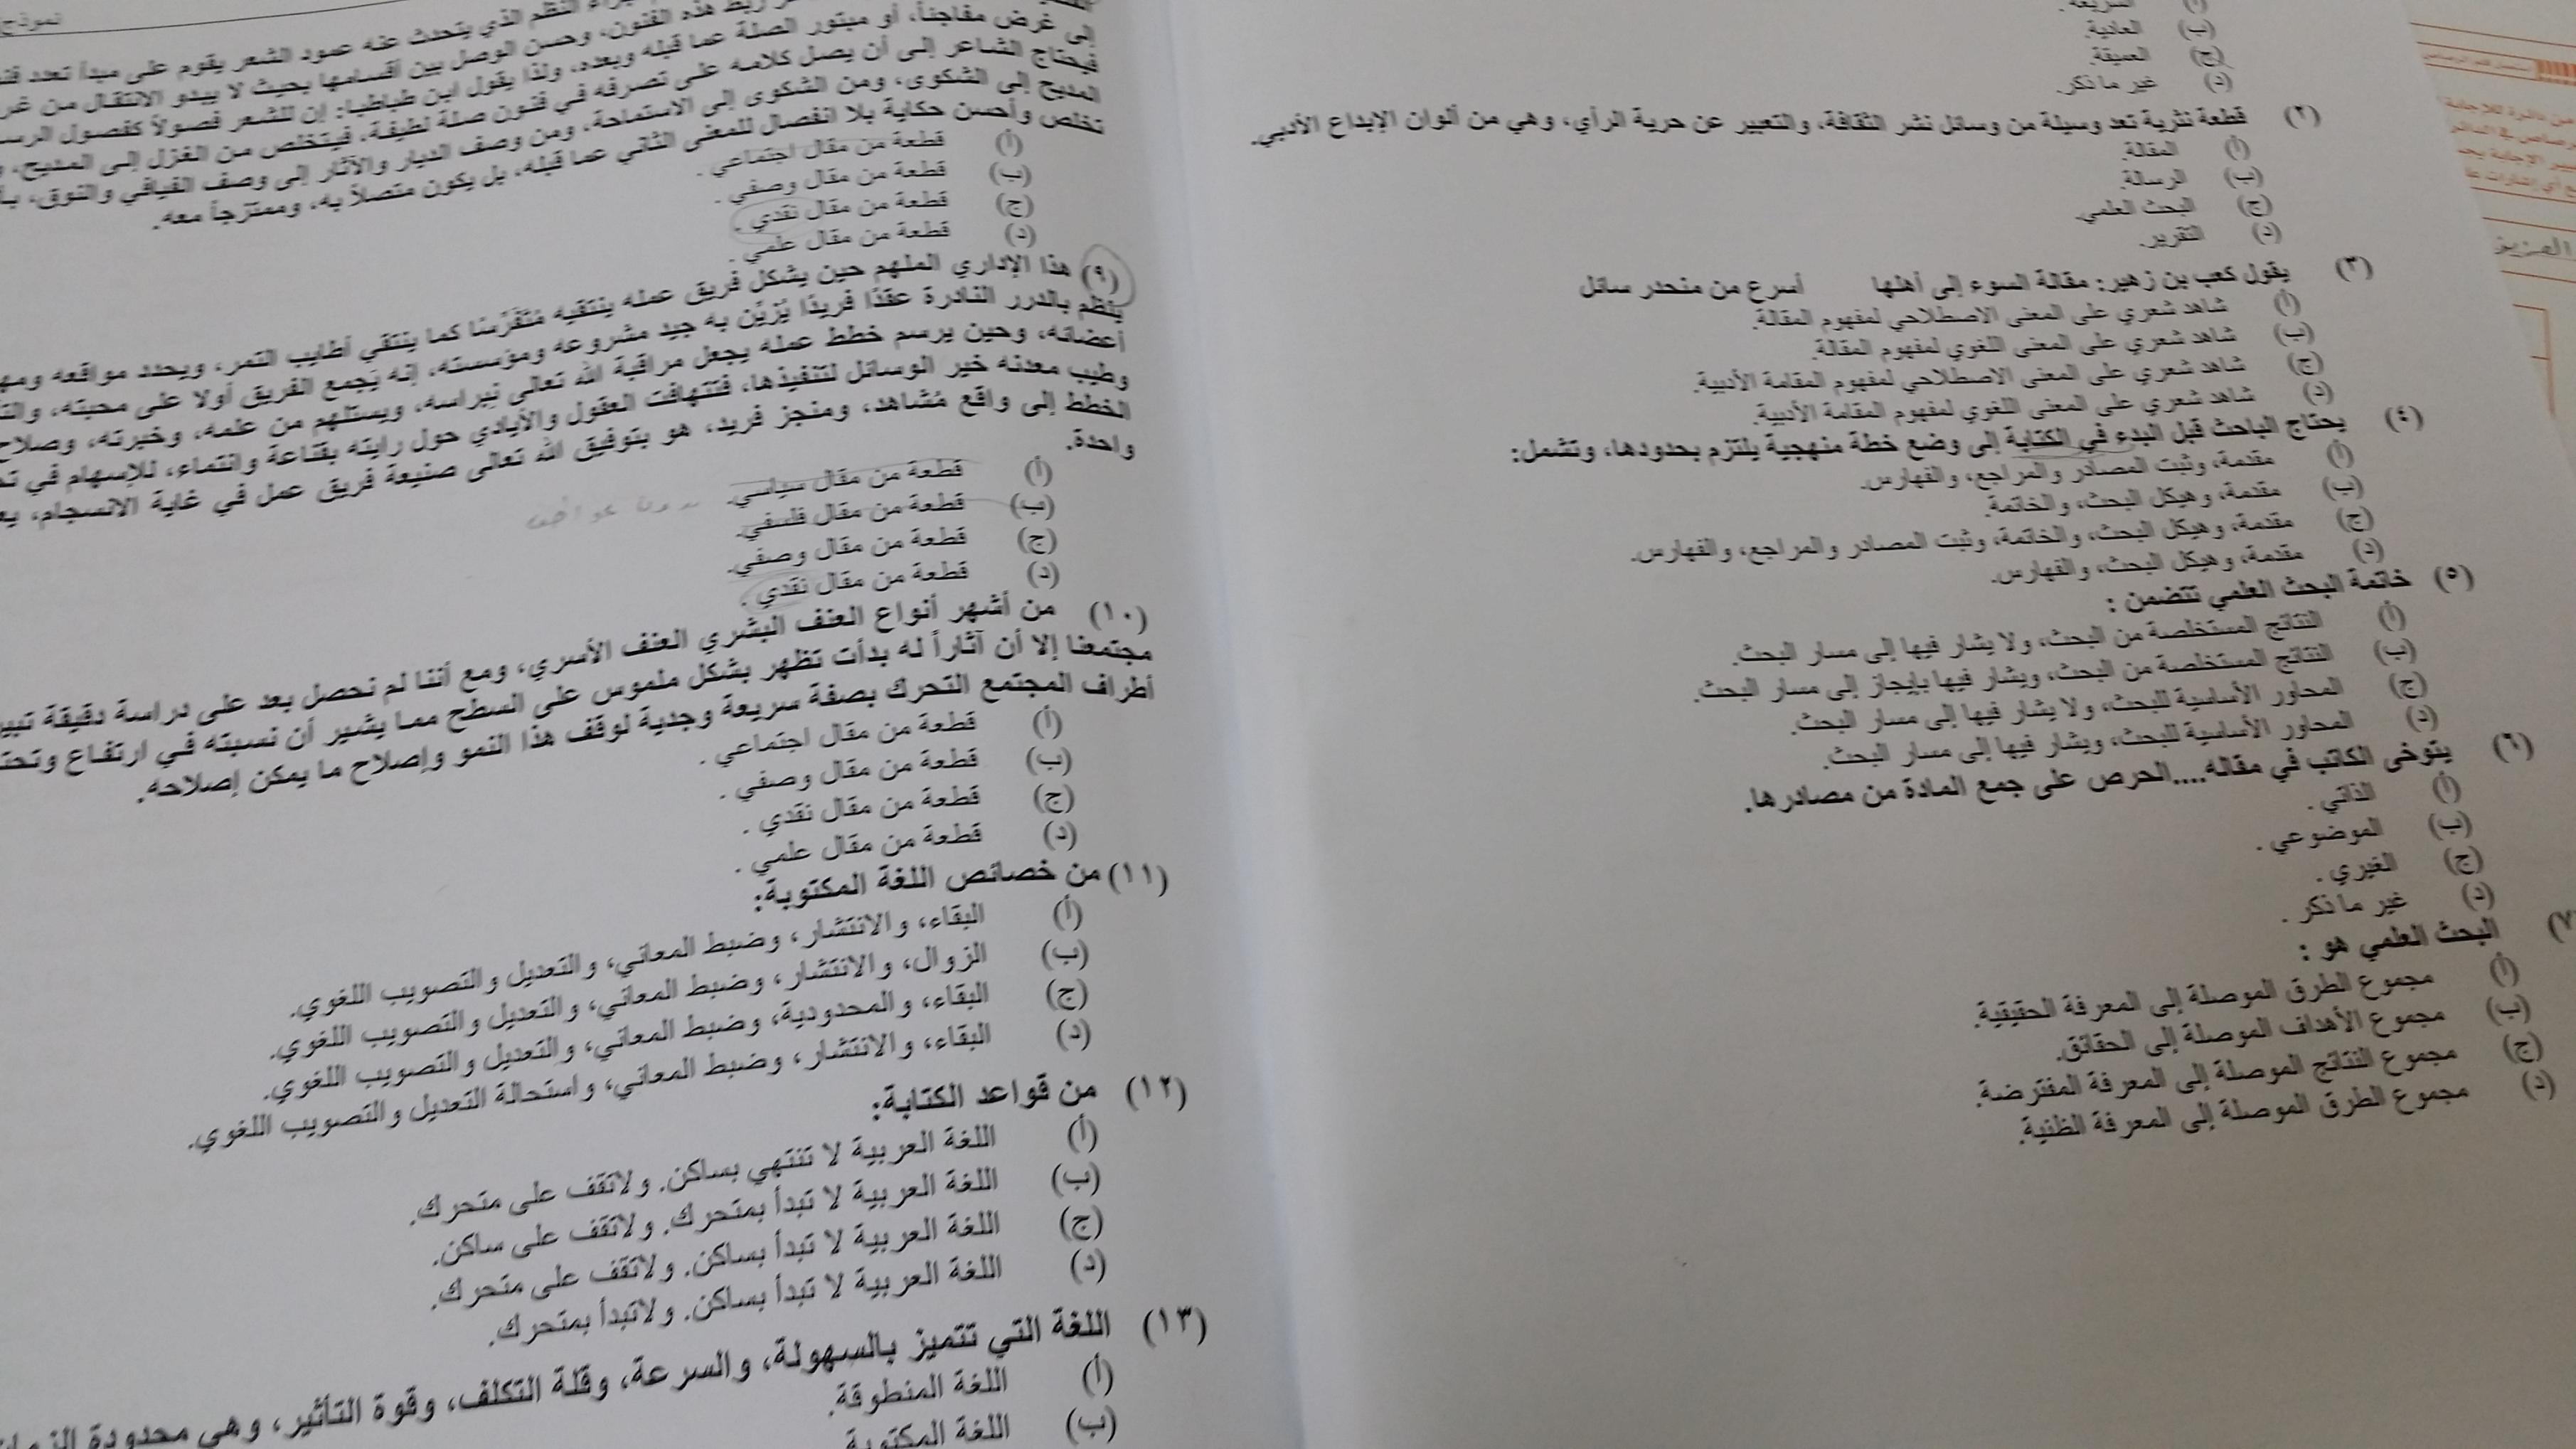 السريعة.
(ب) العادية.
(ج) العميقة.
(د) غير ما ذكر.
(٢) قطعة نثرية تعد وسيلة من وسائل نشر الثقافة، والتعبير عن حرية الرأي، وهي من ألوان الإبداع الأدبي.
(أ) المقالة.
(ب) الرسالة.
(ج) البحث العلمي.
(د) التقرير.
(٣) يقول كعب بن زهير: مقالة السوء إلى أهلها أسرع من منحدر سائل
(أ) شاهد شعري على المعنى الاصطلاحي لمفهوم المقالة.
(ب) شاهد شعري على المعنى اللغوي لمفهوم المقالة.
(ج) شاهد شعري على المعنى الاصطلاحي لمفهوم المقامة الأدبية.
(د) شاهد شعري على المعنى اللغوي لمفهوم المقامة الأدبية.
(٤) يحتاج الباحث قبل البدء في الكتابة إلى وضع خطة منهجية يلتزم بحدودها، وتشمل:
(أ) مقدمة، وثبت المصادر والمراجع، والفهارس.
(ب) مقدمة، وهيكل البحث، والخاتمة.
(ج) مقدمة، وهيكل البحث، والخاتمة، وثبت المصادر والمراجع، والفهارس.
(د) مقدمة، وهيكل البحث، والفهارس.
(٥) خاتمة البحث العلمي تتضمن :
(أ) النتائج المستخلصة من البحث، ولا يشار فيها إلى مسار البحث.
(ب) النتائج المستخلصة من البحث، ويشار فيها بإيجاز إلى مسار البحث.
(ج) المحاور الأساسية للبحث، ولا يشار فيها إلى مسار البحث.
(د) المحاور الأساسية للبحث، ويشار فيها إلى مسار البحث.
(٦) يتوخى الكاتب في مقاله....الحرص على جمع المادة من مصادرها.
(أ) الذاتي .
(ب) الموضوعي .
(ج) الغيري .
(د) غير ما ذكر .
(٧ البحث العلمي هو :
(أ) مجموع الطرق الموصلة إلى المعرفة الحقيقية.
(ب) مجموع الأهداف الموصلة إلى الحقائق.
(ج) مجموع النتائج الموصلة إلى المعرفة المفترضة.
(د) مجموع الطرق الموصلة إلى المعرفة الظنية.
نموذج
النظم الذي يتحدث عنه عمود الشعر يقوم على مبدأ تعدد
فيحتاج الشاعر إلى ربط هذه الفنون، وحسن الوصل بين أقسامها بحيث لا يبدو الانتقال من
إلى غرض مفاجئاً، أو مبتور الصلة عما قبله وبعده، ولذا يقول ابن طباطبا: إن للشعر فصولاً كفصول
فيحتاج الشاعر إلى أن يصل كلامه على تصرفه في فنون صلة لطيفة، فيتخلص من الغزل إلى المديح،
المديح إلى الشكوى، ومن الشكوى إلى الاستماحة، ومن وصف الديار والآثار إلى وصف الفيافي والنوق،
تخلص وأحسن حكاية بلا انفصال للمعنى الثاني عما قبله، بل يكون متصلاً به، وممتزجاً معه.
(أ) قطعة من مقال اجتماعي .
(ب) قطعة من مقال وصفي .
(ج) قطعة من مقال نقدي .
(د) قطعة من مقال علمي .
(٩) هذا الإداري الملهم حين يشكل فريق عمله ينتقيه مُتَفَرِّسًا كما ينتقي أطايب التمر، ويحدد مواقعه
ينظم بالدرر النادرة عقدًا فريدًا يُزيِّن به جيد مشروعه ومؤسسته، إنه يَجمع الفريق أولا على محبته،
أعضائه، وحين يرسم خطط عمله يجعل مراقبة الله تعالى نِبراسه، ويستلهم من علمه، وخبرته،
وطيب معدنه خير الوسائل لتنفيذها، فتتهافت العقول والأيادي حول رايته بقناعة وانتماء، للإسهام في
الخطط إلى واقع مُشاهد، ومنجز فريد، هو بتوفيق الله تعالى صنيعة فريق عمل في غاية الانسجام،
واحدة.
(أ) قطعة من مقال سياسي.
(ب) قطعة من مقال فلسفي.
(ج) قطعة من مقال وصفي.
(د) قطعة من مقال نقدي .
(١٠) من أشهر أنواع العنف البشري العنف الأسري، ومع أننا لم نحصل بعد على دراسة دقيقة
مجتمعنا إلا أن آثاراً له بدأت تظهر بشكل ملموس على السطح مما يشير أن نسبته في ارتفاع
أطراف المجتمع التحرك بصفة سريعة وجدية لوقف هذا النمو وإصلاح ما يمكن إصلاحه.
(أ) قطعة من مقال اجتماعي .
(ب) قطعة من مقال وصفي .
(ج) قطعة من مقال نقدي .
(د) قطعة من مقال علمي .
(١١) من خصائص اللغة المكتوبة:
(أ) البقاء، والانتشار، وضبط المعاني، والتعديل والتصويب اللغوي.
(ب) الزوال، والانتشار، وضبط المعاني، والتعديل والتصويب اللغوي.
(ج) البقاء، والمحدودية، وضبط المعاني، والتعديل والتصويب اللغوي.
(د) البقاء، والانتشار، وضبط المعاني، واستحالة التعديل والتصويب اللغوي.
(١٢) من قواعد الكتابة:
(أ) اللغة العربية لا تنتهي بساكن. ولاتقف على متحرك.
(ب) اللغة العربية لا تبدأ بمتحرك. ولاتقف على ساكن.
(ج) اللغة العربية لا تبدأ بساكن. ولاتقف على متحرك.
(د) اللغة العربية لا تبدأ بساكن. ولاتبدأ بمتحرك.
(١٣) اللغة التي تتميز بالسهولة، والسرعة، وقلة التكلف، وقوة التأثير، وهي محدودة
(أ) اللغة المنطوقة.
(ب) اللغة المكتوبة